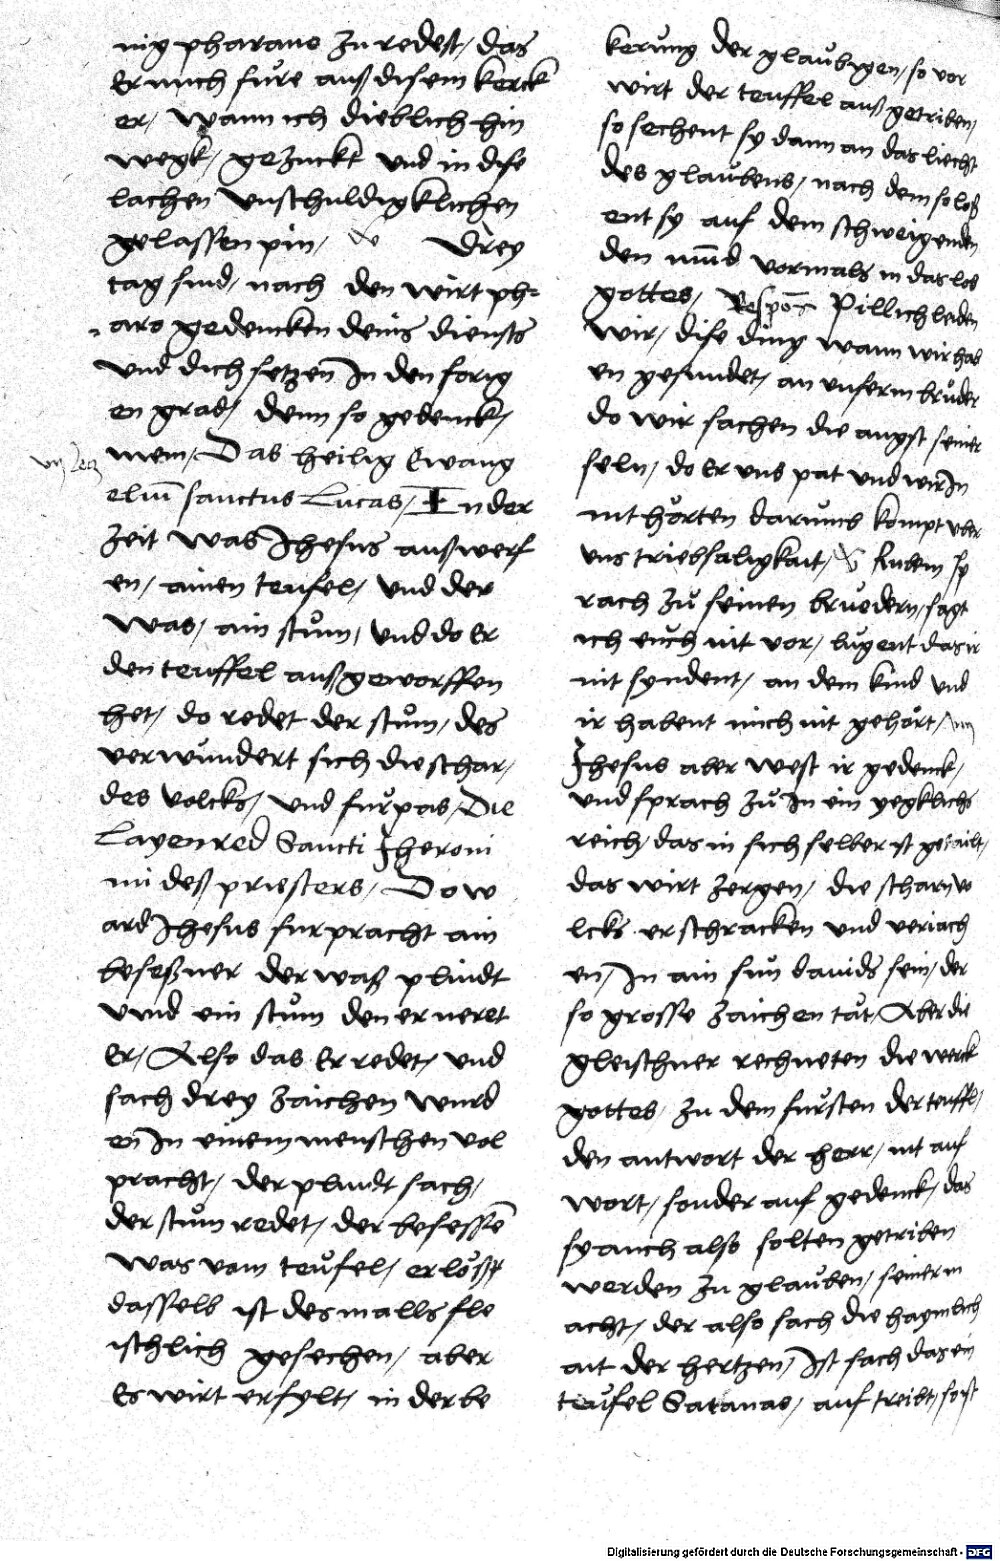 nig pharano zu redest, das
Er mich fure auß disem kerck
er, wann ich dieblich hin
wegk, gezuckt vnd in dise
lachen vnschuldigklichen
gelassen pin, Drey
tag sind, nach den wirt ph-
aro gedencken deins diensts
vnd dich setzen In den forig
en grad, denn so gedenck,
mein, Das heilig Ewang
eliū sanctus Lucas, In der
zeit was Jhesus außwerf
en, ainen teufel, vnd der
was, ain stum, vnd do Er
den teuffel außgeworffen
het, do redet der stum, des
verwundert sich die schar,
des volcks, vnd furpas, Die
Layenred Sancti Jheroni
mi deß priesters, Do w
ard Jhesus furpracht ain
beseßner der waß plindt
vnnd ein stum den er neret
Er, Also das Er redet, vnd
sach drey zaichen wurd
en In einem menschen vol
pracht, der plindt sach,
der stum redet, der besessē
was vom teufel, erlößt
dasselb ist desmalls fle
ischlich gesechen, aber
Es wirt erfylt, in der be
kerung der glaubigen, so vor
wirt der teuffel auß getriben,
so sechent sy dann an das liecht
des glaubens, nach dem so loß
ent sy auf dem schweigenden
den mūd vormals in das lob
gottes, Respōs Pillich leiden
wir, dise ding wann wir hab
en gesundet, an vnserm bruder
do wir sachen die angst seiner
seln, do Er vns pat vnd wir In
nit horten darumb kompt vber
vns triebsaligkait, Rubem sp
rach zu seinen bruedern, sagt
ich euch nit vor, lugent das ir
nit syndent, an dem kind vnd
ir habent mich nit gehort,
Jhesus aber west ir gedenck,
vnd sprach zu In ein yegklichs
reich, das in sich selber ist getailt,
das wirt zergen, die scharn vo
lcks erschracken vnd veriach
en, In ain sun dauids sein, der
so grosse zaichen tut, Aber die
gleischner rechneten die werck
gottes, zu dem fursten der teuffl,
den antwort der herr, nit auf
wort, sonder auf gedenck, das
sy auch also solten getriben
werden zu glauben, seiner m
acht, der also sach die haymlich
ait der hertzen, Ist sach das ein
teufel Satanas, auf treibt, so ist
Digitalisierung gefördert durch die Deutsche Forschungsgemeinschaft - DFG